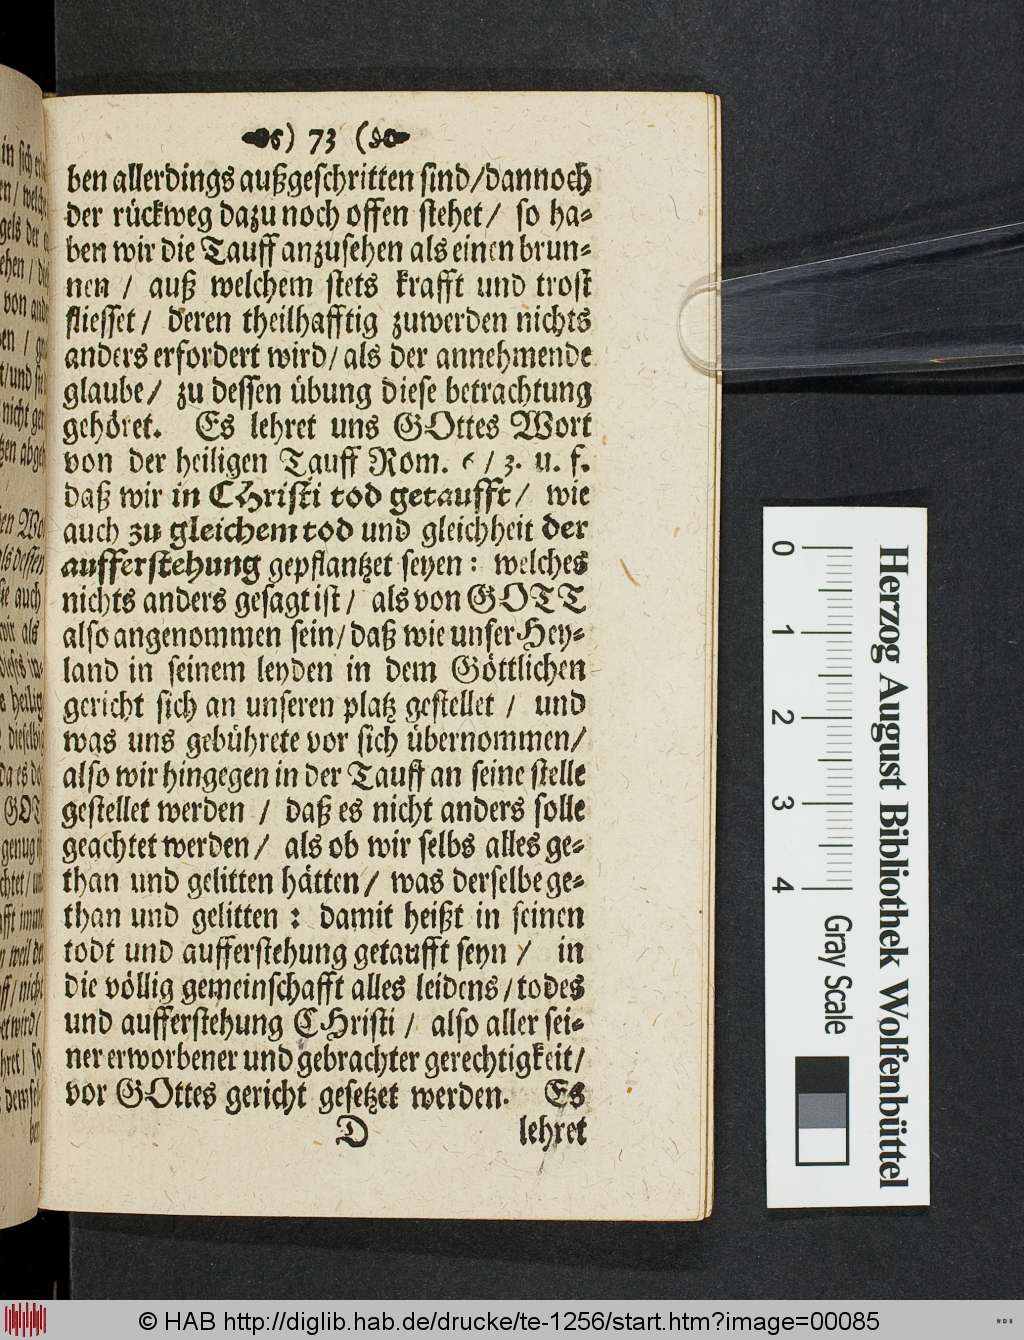 ) 73 (
ben allerdings außgeschritten sind/dannoch
der rückweg dazu noch offen stehet/ so ha-
ben wir die Tauff anzusehen als einen brun-
nen / auß welchem stets krafft und trost
fliesset/ deren theilhafftig zuwerden nichts
anders erfordert wird/ als der annehmende
glaube/ zu dessen übung diese betrachtung
gehöret. Es lehret uns GOttes Wort
von der heiligen Tauff Rom. 6/3. u. f.
daß wir in CHristi tod getaufft/ wie
auch zu gleichem tod und gleichheit der
aufferstehung gepflantzet seyen: welches
nichts anders gesagt ist/ als von GOTT
also angenommen sein/ daß wie unser Hey-
land in seinem leyden in dem Göttlichen
gericht sich an unseren platz gestellet / und
was uns gebührete vor sich übernommen/
also wir hingegen in der Tauff an seine stelle
gestellet werden / daß es nicht anders solle
geachtet werden/ als ob wir selbs alles ge-
than und gelitten hätten/ was derselbe ge-
than und gelitten: damit heißt in seinen
todt und aufferstehung getaufft seyn / in
die völlig gemeinschafft alles leidens/ todes
und aufferstehung CHristi/ also aller sei-
ner erworbener und gebrachter gerechtigkeit/
vor GOttes gericht gesetzet werden. Es
D lehret
Herzog August Bibliothek Wolfenbüttel
0 1 2 3 4 Gray Scale
© HAB http://diglib.hab.de/drucke/te-1256/start.htm?image=00085